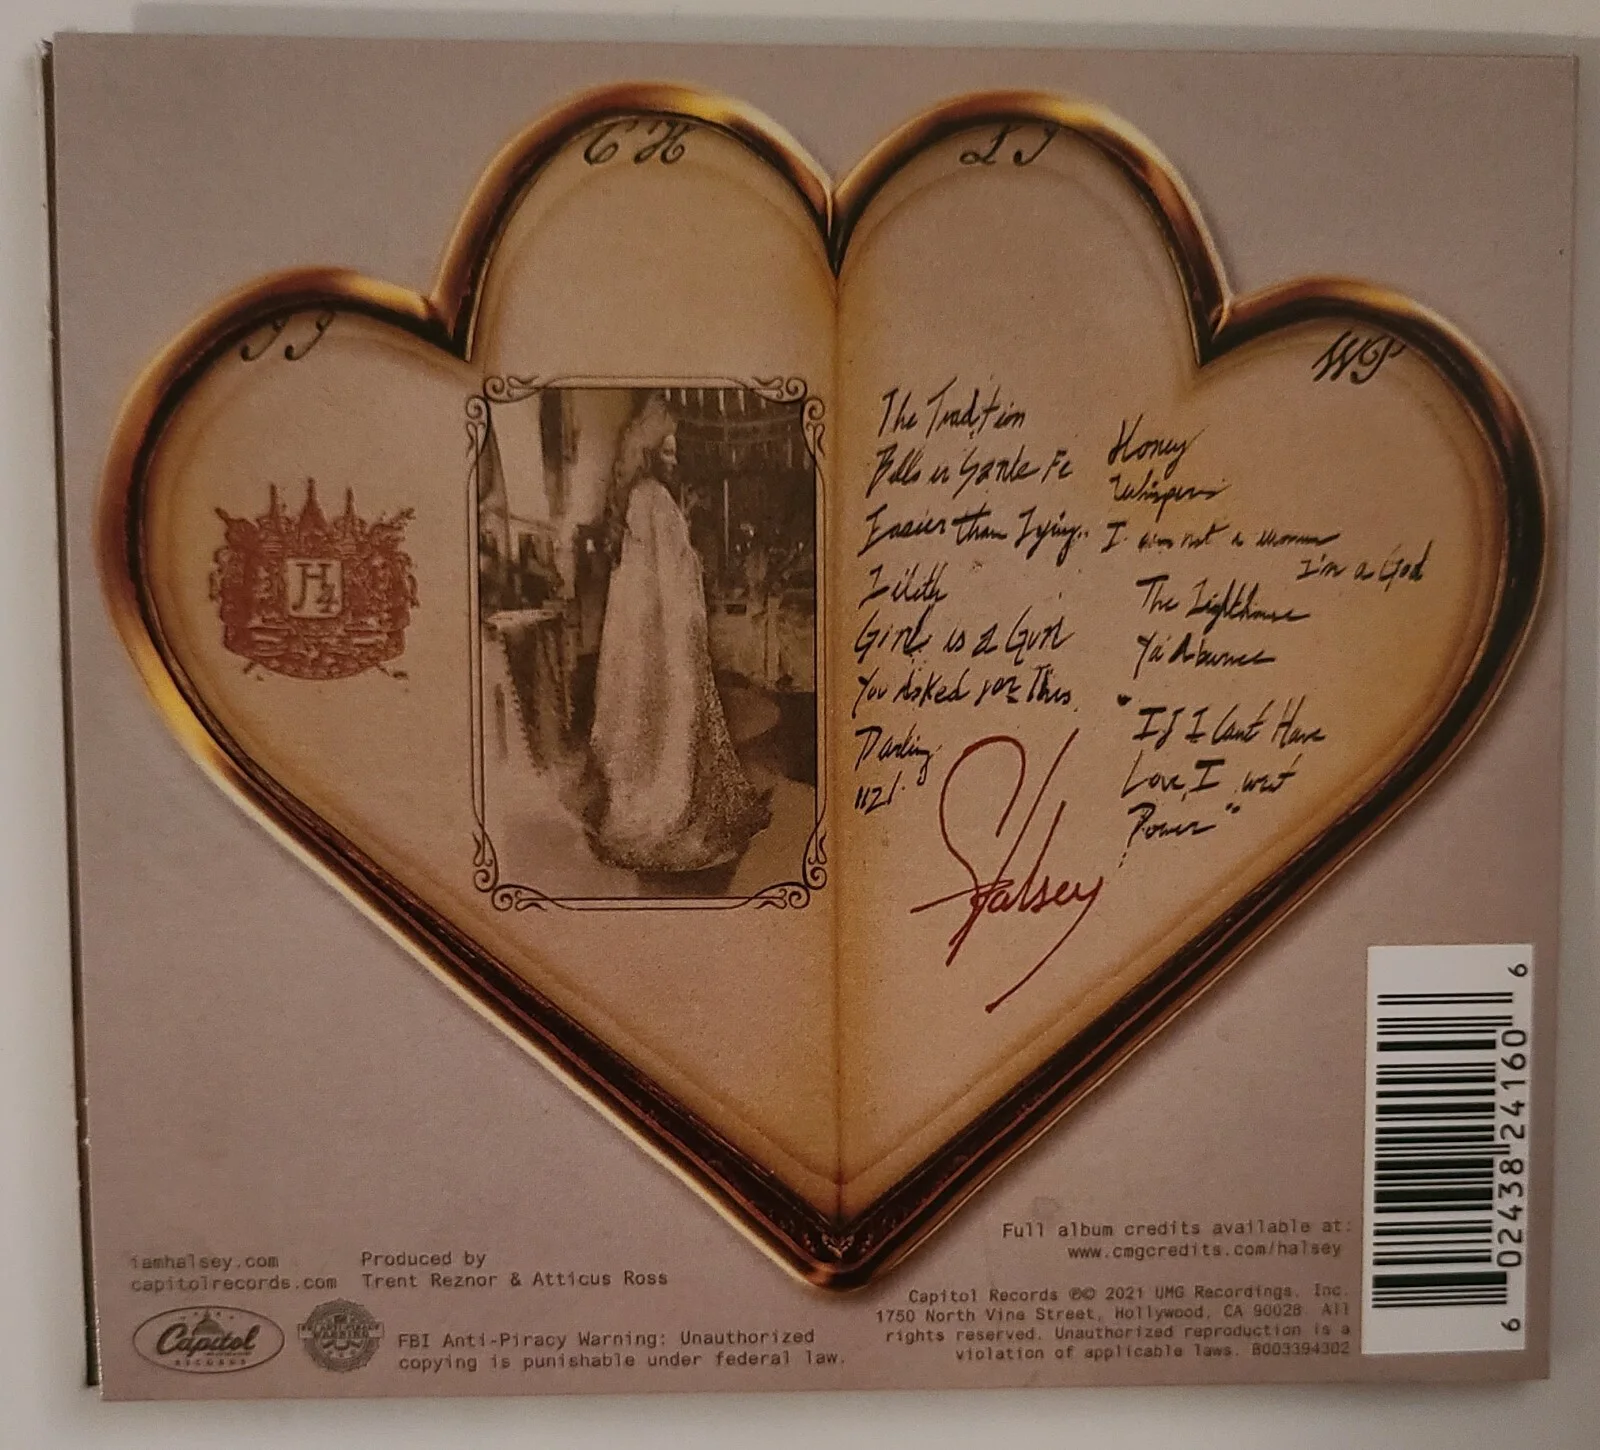 C H
L J
J J
W P
H4
The Tradition
Bells in Santa Fe
Easier than Lying..
Lilith
Girl is a Gun
You Asked for This
Darling
1121.
Honey
Whispers
I am not a woman
I'm a God
The Lighthouse
Ya'Aburnee
"If I Can't Have
Love, I want
Power"
Halsey
iamhalsey.com
capitolrecords.com
Produced by
Trent Reznor & Atticus Ross
Capitol
RECORDS
FBI Anti-Piracy Warning: Unauthorized
copying is punishable under federal law.
Full album credits available at:
www.cmgcredits.com/halsey
Capitol Records ℗© 2021 UMG Recordings, Inc.
1750 North Vine Street, Hollywood, CA 90028. All
rights reserved. Unauthorized reproduction is a
violation of applicable laws. B003394302
6 02438 24160 6